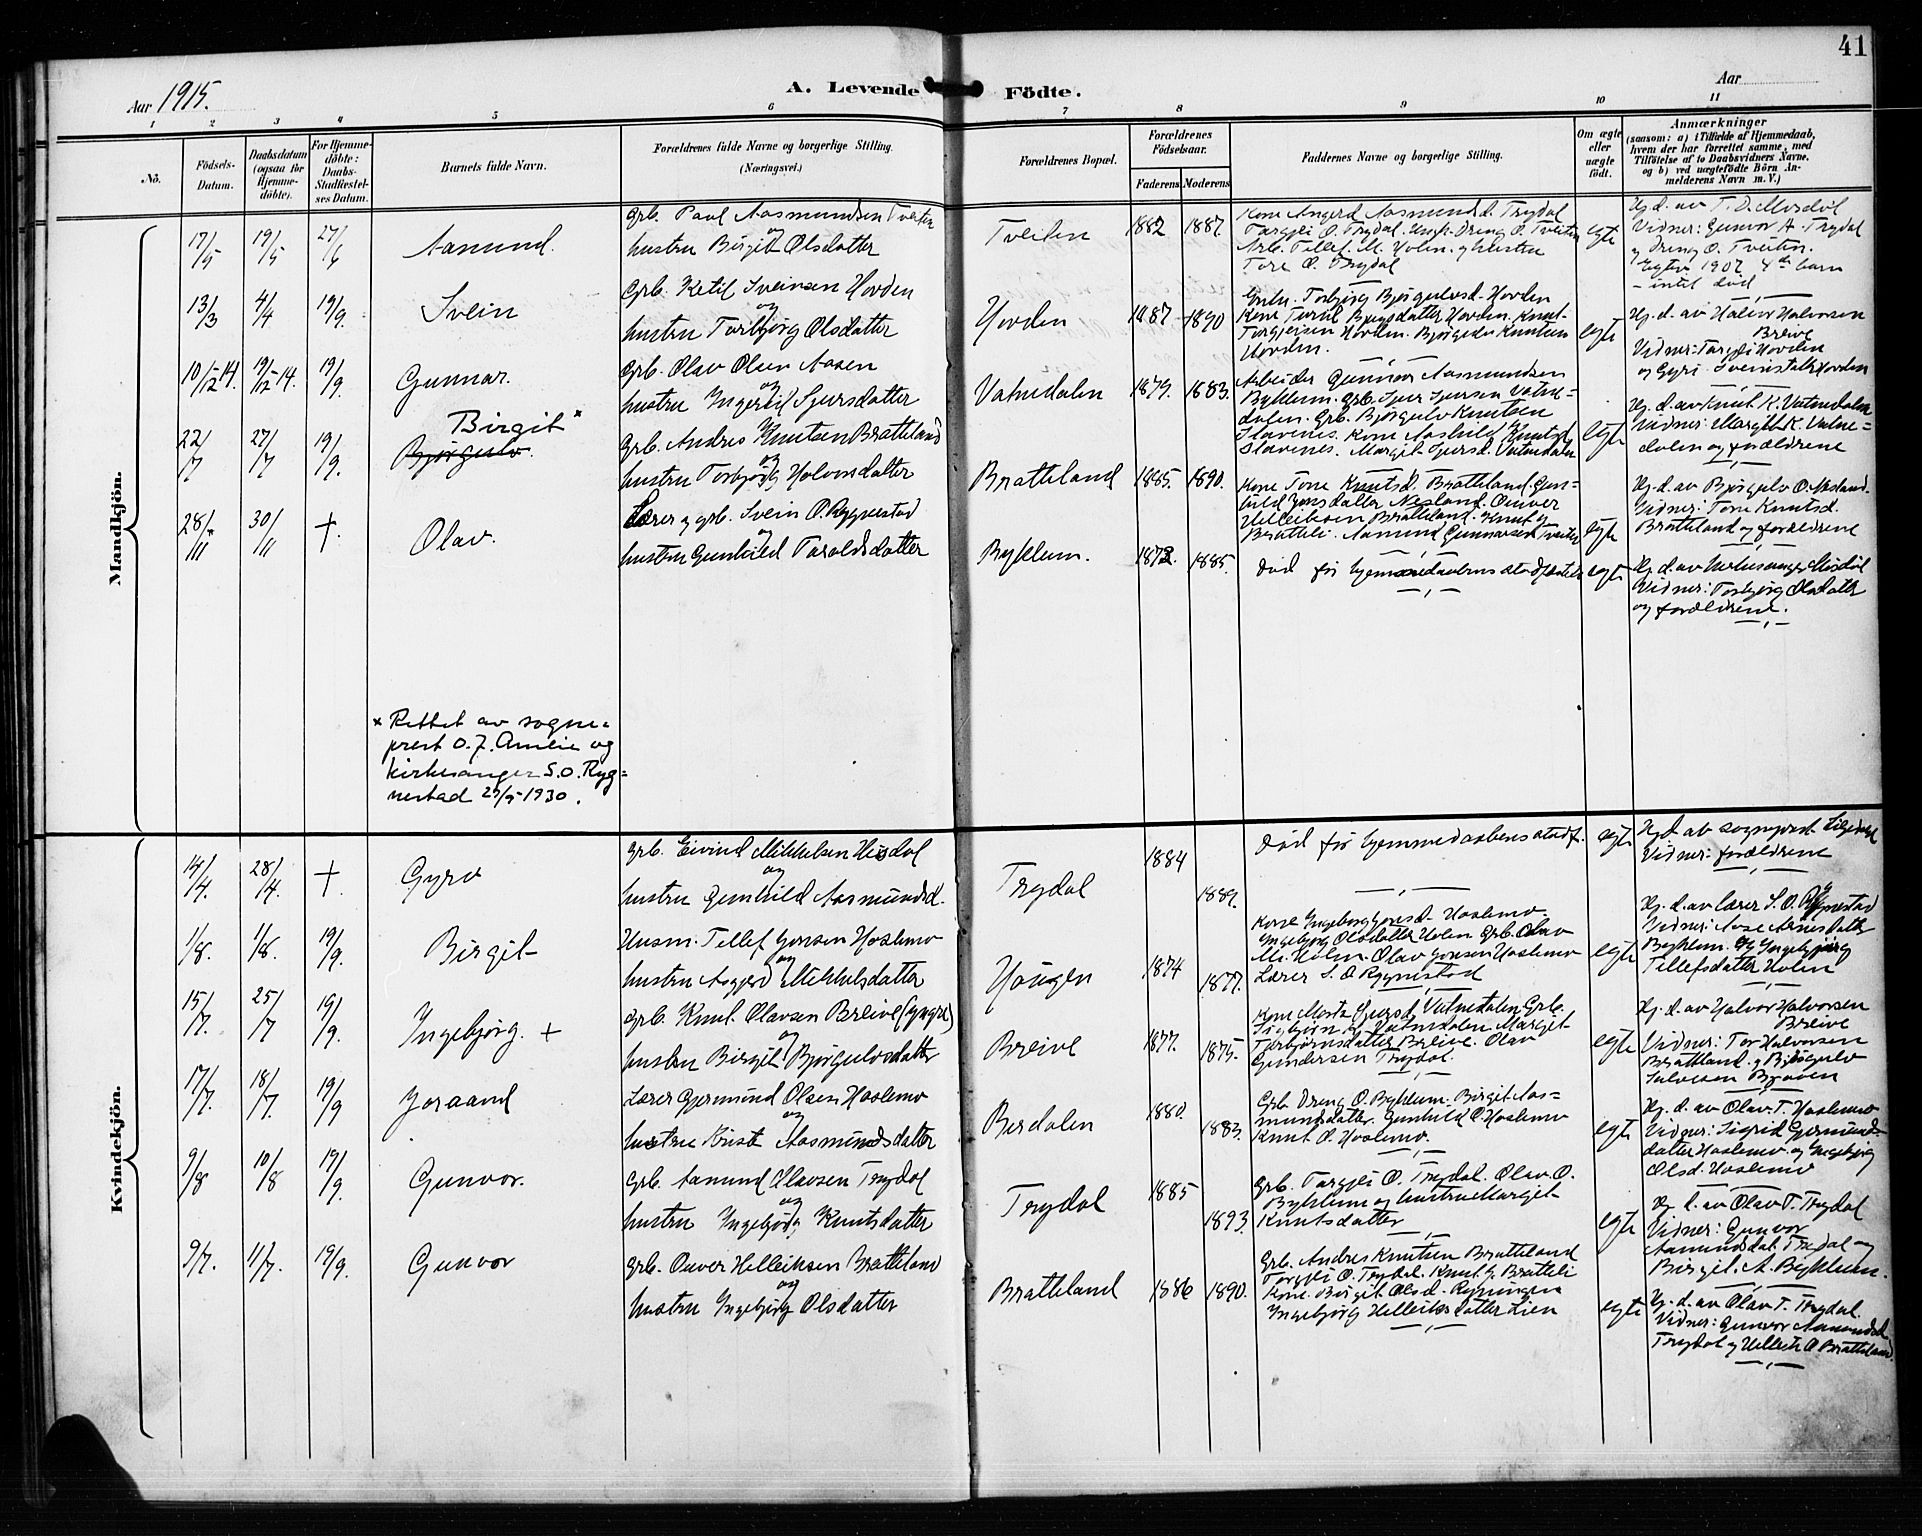 41
Aar 1915.
A. Levende Födte.
Aar
1 2 3 4 5 6 7 8 9 10 11
No.
Födsels-Datum.
Daabsdatum (ogsaa for Hjemmedöbte).
For Hjemmedöbte: Daabs-Stadfæstelses Datum.
Barnets fulde Navn.
Forældrenes fulde Navne og borgerlige Stilling.
(Næringsvei.)
Forældrenes Bopæl.
Forældrenes Födselsaar.
Faderens Moderens
Faddernes Navne og borgerlige Stilling.
Om ægte eller uægte født.
Anmærkninger
(saasom: a) i Tilfælde af Hjemmedaab,
hvem der har forrettet samme, med
Tilföielse af to Daabsvidners Navne.
og b) ved uægtefödte Börn An-
melderens Navn m. V.)
Mandkjön.
17/5 19/5 27/6
Aamund.
Grb. Paul Aasmundsen Tveiten
og
hustru Birgit Olsdatter
Tveiten
1882 1887.
Kone Angerd Aasmundd. Trydal
Targjei O. Trydal. Ungk. Dreng O. Tveiten
Arb. Tellef M. Holen og hustru
Tore O. Trydal
egte
Hj. d. av T. O. Mosdøl
Vidner: Gunvor A. Trydal
og Dreng O. Tveiten.
Egtev. 1907 4de barn
– intet død
13/3 4/4 19/9.
Svein
Grb. Ketil Sveinsen Hovden
og
hustru Torbjørg Olsdatter
Hovden
1887 1890
Enke. Torbjørg Bjørgulvsd. Hovden
Kone Torill Bjugsdatter Hovden. Knut
Torgjeirsen Hovden. Bjørgulv Knutsen
Hovden.
egte
Hj. d. av Halvor Halvorsen
Breive
Vidner: Targjei Hovden
og Gyri Sveinsdatter Hovden
10/12 14. 19/12 14. 19/9.
Gunnar.
Grb. Olav Olsen Aasen
og
hustru Ingerid Sjursdatter
Vatnedalen
1879. 1883.
Arbeider Gunnar Aasmundsen
Bykleum. Grb. Sjur Sjursen Vatne-
dalen. Grb. Bjørgulv Knutsen
Stavenes. Kone Aashild Knutsd.
Stavenes. Margit Sjursd. Vatnedalen
egte
Hj. d. av Knut K. Vatnedalen
Vidner: Margit K. Vatne-
dalen og forældrene
22/7 27/7 19/9.
Birgit x
Bjørgulv.
Grb. Andres Knutsen Bratteland
og
hustru Torbjørg Halvorsdatter
Bratteland
1885. 1890.
Kone Tone Knutsd. Bratteland. Gun-
hild Jonsdatter Nesland. Onuver
Helleiksen Bratteland. Knut G.
Bratteli. Aamund Gunnarsen Tveiten
egte
Hj. d. av Bjørgulv O. Nesland.
Vidner: Tone Knutsd.
Bratteland og forældrene
28/11 30/11 +.
Olav.
Lærer og grb. Svein O. Rygnestad
og
hustru Gunhild Taraldsdatter
Bykleum.
1872. 1885.
Død før hjemmedaabens stadfestelse
egte
Hj. d. av kirkesanger Mosdøl
Vidner: Torbjørg Olsdatter
og forældrene.
x Rettet av sogne-
prest O. J. Ameln og
kirkesanger S. O. Ryg-
nestad 29/5 1930.
Kvindekjön.
14/4. 28/4. +.
Gyro
Grb. Eivind Mikkelsen Hisdal
og
hustru Gunhild Aasmundsd.
Trydal
1884 1889.
Død før hjemmedaabens stadf.
egte
Hj. d. av sogneprest Liljedahl
Vidner: forældrene
1/8. 1/8. 19/9.
Birgit
Husm. Tellef Jonsen Hoslemo
og
hustru Asgjerd Mikkelsdatter
Haugen
1874 1877.
Kone Ingeborg Jonsd. Hoslemo
Ingebjørg Olsdatter Holen Grb. Olav
M. Holen. Olav Jonsen Hoslemo
Lærer S. O Rygnestad
egte
Hj. d. av lærer S. O. Rygnestad
Vidner: Aase Arnesdatter
Bykleum. og Ingebjørg
Tellefsdatter Holen
15/7. 25/7 19/9.
Ingebjørg. +
Grb. Knut Olavsen Breive (yngre)
og
hustru Birgit Bjørgulvsdatter
Breive
1877. 1875.
Kone Marta Gjursd. Vatnedalen Grb.
Sigbjørn K. Vatnedalen Margit
Torbjørnsdatter Breive. Olav
Gundersen Trydal.
egte
Hj. d. av Halvor Halvorsen
Breive
Vidner: Tor Halvorsen
Bratteland. og Bjørgulv
Salvesen Bjaaen
17/7. 18/7. 19/9
Joraand
Lærer Gjermund Olsen Hoslemo
og
hustru Kristi Aasmundsdatter
Berdalen
1880. 1883.
Grb. Dreng O. Bykleum. Birgit Aas-
mundsdatter. Gunhild O. Hoslemo
Knut O. Hoslemo.
egte
Hj. d. av Olav T. Hoslemo
Vidner: Sigrid Gjermunds-
datter Hoslemo og Ingebjørg
Olsd. Hoslemo
9/8 10/8 19/9.
Gunvor.
Grb. Aamund Olavsen Trydal
og
hustru Ingebjørg Knutsdatter
Trydal
1885 1893.
Grb. Targjei O. Trydal. Olav O.
Bykleum og hustru Marget
Knutsdatter
egte
Hj. d. av Olav T. Trydal
Vidner: Gunvor
Aamundsdat. Trydal og
Birgit. A. Bykleum.
9/7. 11/7. 19/9.
Gunvor
Grb. Onver Helleiksen Bratteland
og
hustru Ingebjørg Olsdatter
Bratteland
1886 1890.
Grb. Andres Knutsen Bratteland
Targjei O. Trydal. Knut G. Bratteli
Kone. Birgit Olsd. Rygningen
Ingebjørg Helleiksdatter Lien
egte
Hj. d. av Olav T. Trydal.
Vidner: Gunvor Aamundsd.
Trydal og Helleik O Bratteland